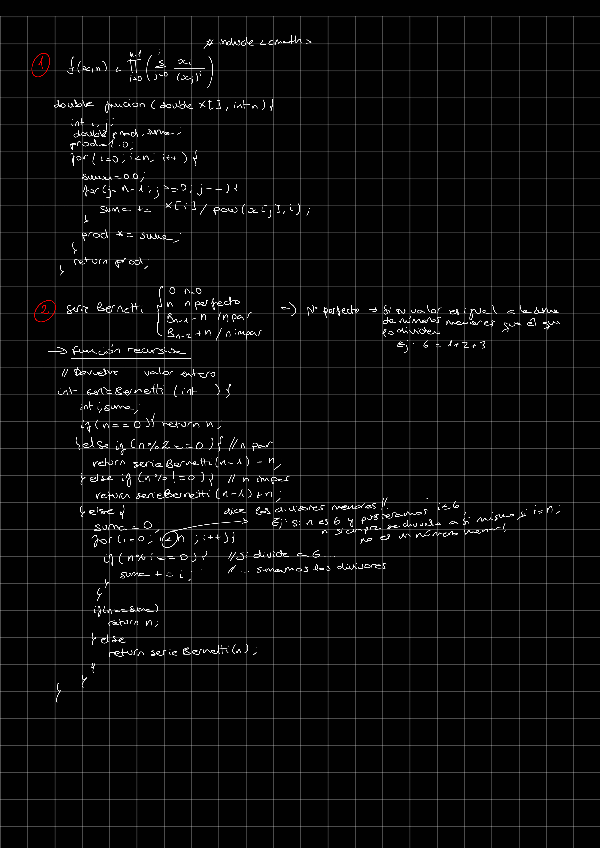 # include <cmath>
1 f(x,n) = n-1 ∏ i=0 ( i ∑ j=0 xi / (xj)^i )
double funcion (double x[], int n) {
int i, j;
double prod, suma;
prod=1.0;
for (i=0; i<n; i++) {
suma=0.0;
for(j=n-1; j>=0; j--) {
suma += x[i] / pow(x[j], i);
}
prod *= suma;
}
return prod;
}
2 Serie Bernetti { 0 n=0
n n perfecto
Bn-1 - n / n par
Bn-2 + n / n impar
→ Nº perfecto → Si su valor es igual a la suma
de números menores que él que
lo dividen
Ej: 6 = 1+2+3
→ Función recursiva
// Devuelve valor entero
int serieBernetti (int ) {
int i, suma;
if (n==0) { return n;
} else if (n%2==0) { // n par
return serieBernetti(n-1) - n;
} else if (n% !=0) { // n impar
return serieBernetti (n-1) + n;
} else {
dice los divisores menores //
suma = 0;
Ej: si n es 6 y pusieramos i≤6,
for (i=0; i<n; i++) {
n siempre se divide a si mismo si i=n;
no es un número menor
if (n%i==0) { // si divide a 6...
suma += i; // ... sumamos los divisores
}
}
if(n==suma)
return n;
} else
return serieBernetti(n);
}
}
}